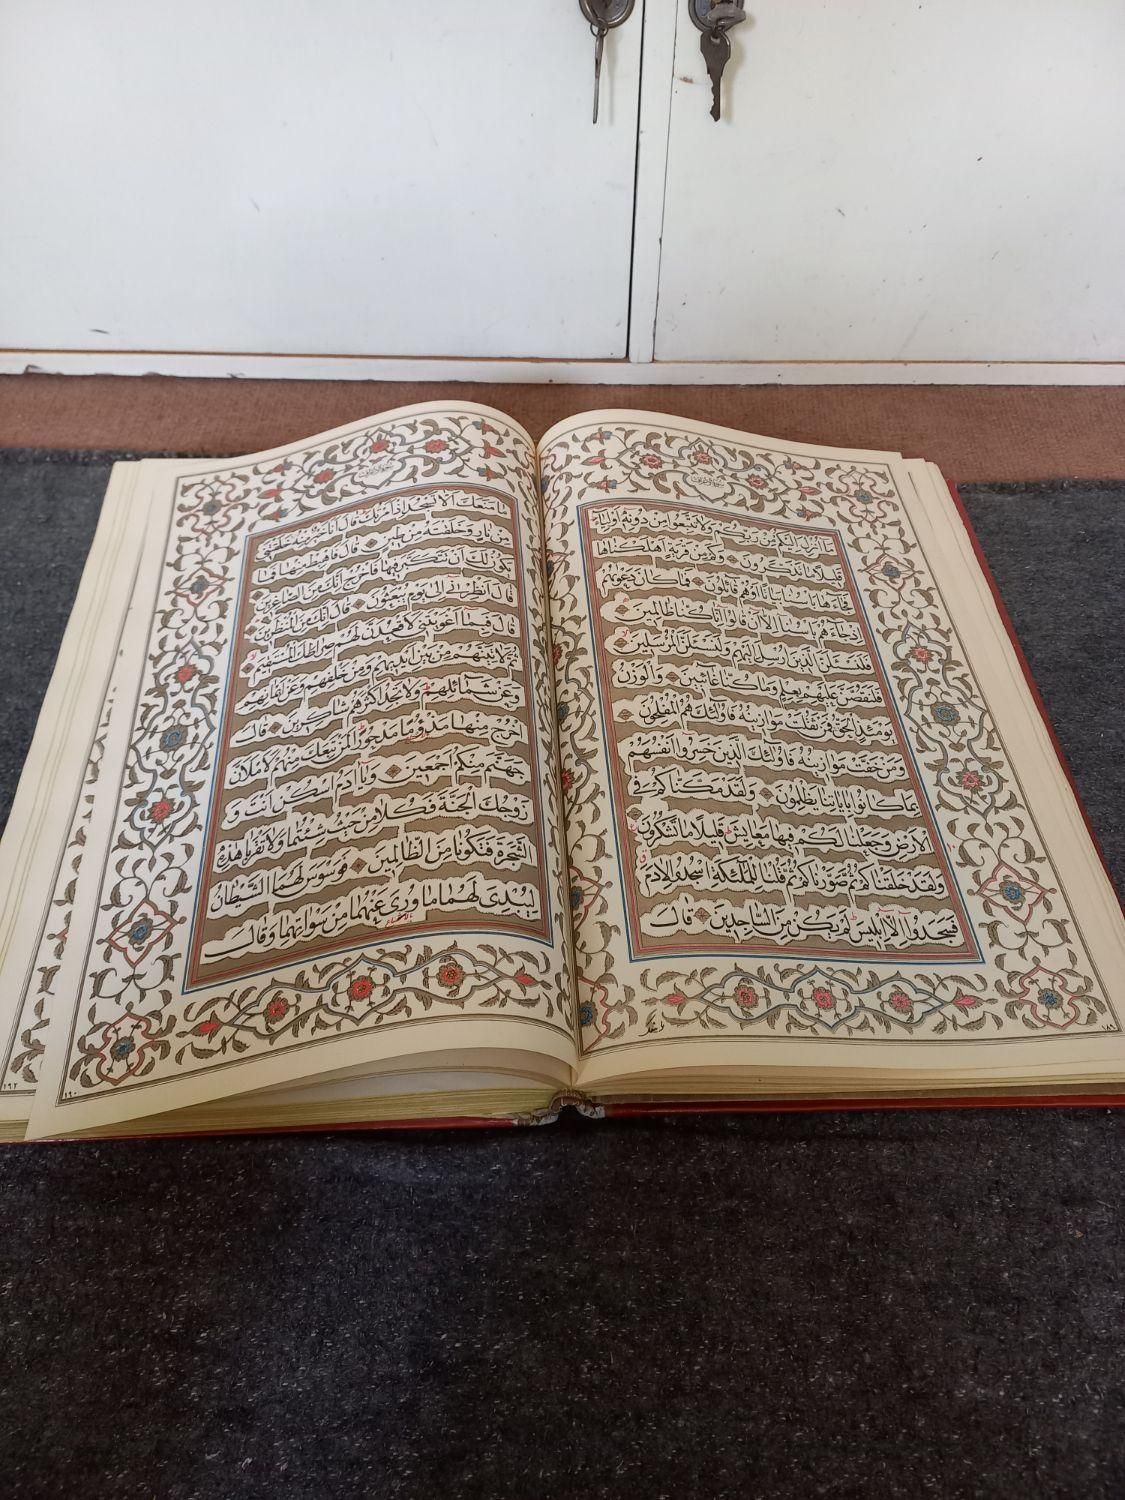 ما أُنزِلَ إِلَيْكُم مِّن رَّبِّكُمْ وَلَا تَتَّبِعُوا مِن دُونِهِ أَوْلِيَاءَ
قَلِيلًا مَّا تَذَكَّرُونَ وَكَم مِّن قَرْيَةٍ أَهْلَكْنَاهَا
فَجَاءَهَا بَأْسُنَا بَيَاتًا أَوْ هُمْ قَائِلُونَ فَمَا كَانَ دَعْوَاهُمْ
إِذْ جَاءَهُم بَأْسُنَا إِلَّا أَن قَالُوا إِنَّا كُنَّا ظَالِمِينَ
فَلَنَسْأَلَنَّ الَّذِينَ أُرْسِلَ إِلَيْهِمْ وَلَنَسْأَلَنَّ الْمُرْسَلِينَ
فَلَنَقُصَّنَّ عَلَيْهِم بِعِلْمٍ وَمَا كُنَّا غَائِبِينَ وَالْوَزْنُ
يَوْمَئِذٍ الْحَقُّ فَمَن ثَقُلَتْ مَوَازِينُهُ فَأُولَٰئِكَ هُمُ الْمُفْلِحُونَ
وَمَنْ خَفَّتْ مَوَازِينُهُ فَأُولَٰئِكَ الَّذِينَ خَسِرُوا أَنفُسَهُم
بِمَا كَانُوا بِآيَاتِنَا يَظْلِمُونَ وَلَقَدْ مَكَّنَّاكُمْ فِي
الْأَرْضِ وَجَعَلْنَا لَكُمْ فِيهَا مَعَايِشَ قَلِيلًا مَّا تَشْكُرُونَ
وَلَقَدْ خَلَقْنَاكُمْ ثُمَّ صَوَّرْنَاكُمْ ثُمَّ قُلْنَا لِلْمَلَائِكَةِ اسْجُدُوا لِآدَمَ
فَسَجَدُوا إِلَّا إِبْلِيسَ لَمْ يَكُن مِّنَ السَّاجِدِينَ قَالَ
١٨٩
مَا مَنَعَكَ أَلَّا تَسْجُدَ إِذْ أَمَرْتُكَ قَالَ أَنَا خَيْرٌ مِّنْهُ خَلَقْتَنِي
مِن نَّارٍ وَخَلَقْتَهُ مِن طِينٍ قَالَ فَاهْبِطْ مِنْهَا فَمَا
يَكُونُ لَكَ أَن تَتَكَبَّرَ فِيهَا فَاخْرُجْ إِنَّكَ مِنَ الصَّاغِرِينَ
قَالَ أَنظِرْنِي إِلَىٰ يَوْمِ يُبْعَثُونَ قَالَ إِنَّكَ مِنَ الْمُنظَرِينَ
قَالَ فَبِمَا أَغْوَيْتَنِي لَأَقْعُدَنَّ لَهُمْ صِرَاطَكَ الْمُسْتَقِيمَ
ثُمَّ لَآتِيَنَّهُم مِّن بَيْنِ أَيْدِيهِمْ وَمِنْ خَلْفِهِمْ وَعَنْ أَيْمَانِهِمْ
وَعَن شَمَائِلِهِمْ وَلَا تَجِدُ أَكْثَرَهُمْ شَاكِرِينَ قَالَ
اخْرُجْ مِنْهَا مَذْءُومًا مَّدْحُورًا لَّمَن تَبِعَكَ مِنْهُمْ لَأَمْلَأَنَّ
جَهَنَّمَ مِنكُمْ أَجْمَعِينَ وَيَا آدَمُ اسْكُنْ أَنتَ وَ
زَوْجُكَ الْجَنَّةَ فَكُلَا مِنْ حَيْثُ شِئْتُمَا وَلَا تَقْرَبَا هَٰذِهِ
الشَّجَرَةَ فَتَكُونَا مِنَ الظَّالِمِينَ فَوَسْوَسَ لَهُمَا الشَّيْطَانُ
لِيُبْدِيَ لَهُمَا مَا وُورِيَ عَنْهُمَا مِن سَوْآتِهِمَا وَقَالَ
١٩٠
١٩٢